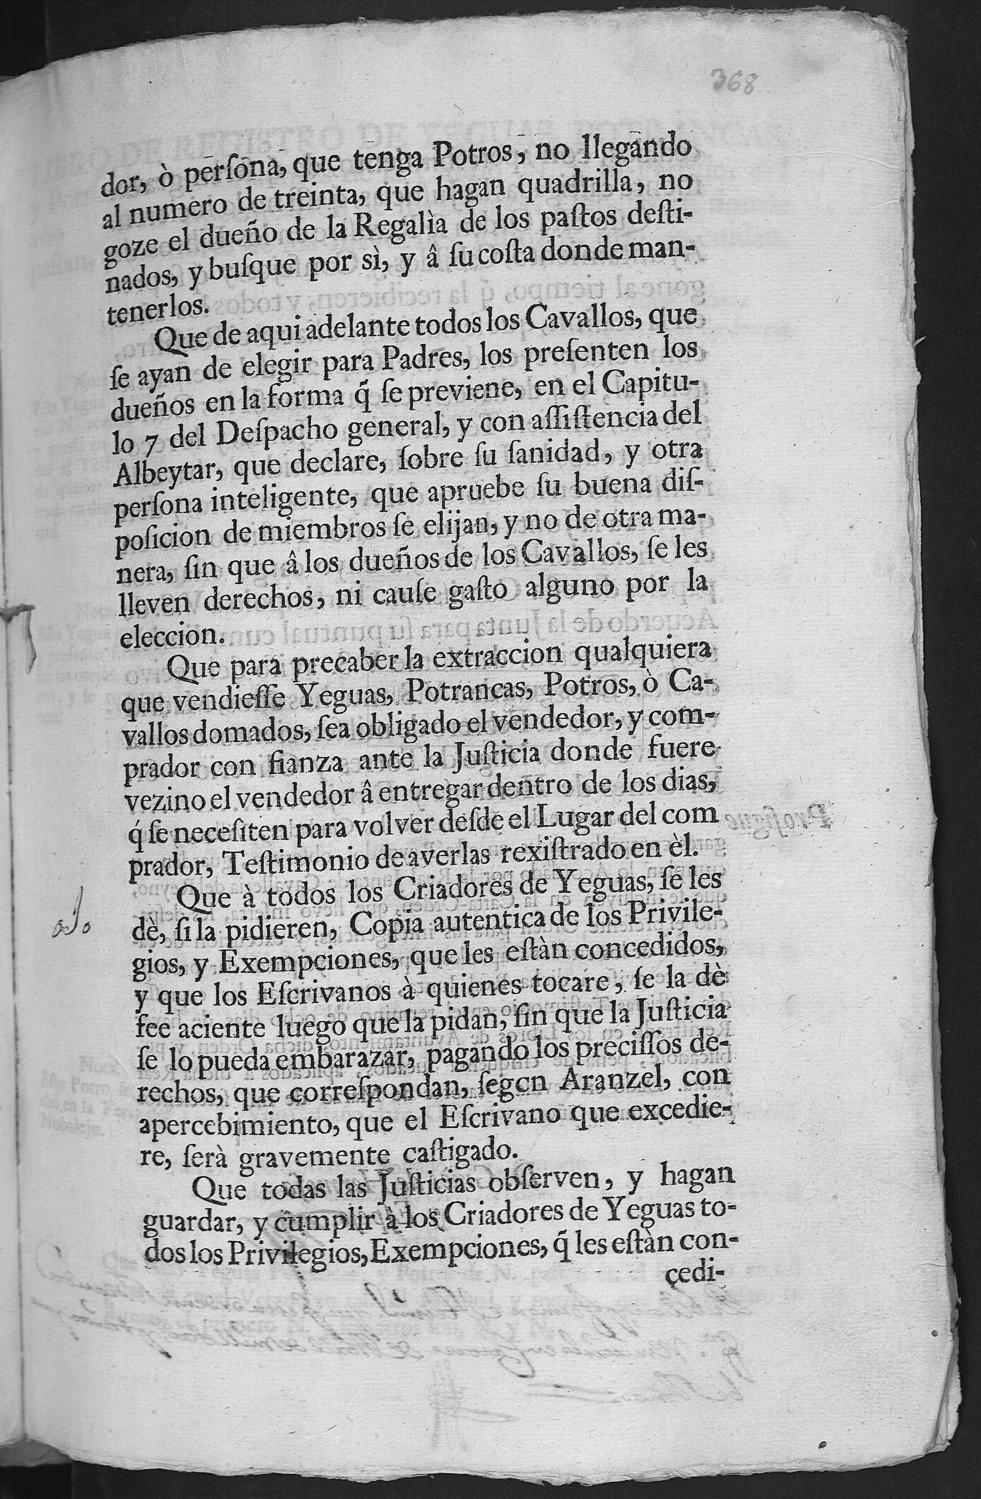 368
dor, ò perſona, que tenga Potros, no llegando
al numero de treinta, que hagan quadrilla, no
goze el dueño de la Regalìa de los paſtos deſti-
nados, y buſque por sì, y â ſu coſta donde man-
tenerlos.
Que de aqui adelante todos los Cavallos, que
ſe ayan de elegir para Padres, los preſenten los
dueños en la forma q̃ ſe previene, en el Capitu-
lo 7 del Deſpacho general, y con aſſiſtencia del
Albeytar, que declare, ſobre ſu ſanidad, y otra
perſona inteligente, que apruebe ſu buena diſ-
poſicion de miembros ſe elijan, y no de otra ma-
nera, ſin que â los dueños de los Cavallos, ſe les
lleven derechos, ni cauſe gaſto alguno por la
eleccion.
Que para precaber la extraccion qualquiera
que vendieſſe Yeguas, Potrancas, Potros, ò Ca-
vallos domados, ſea obligado el vendedor, y com-
prador con fianza ante la Juſticia donde fuere
vezino el vendedor â entregar dentro de los dias,
q́ ſe neceſiten para volver deſde el Lugar del com
prador, Teſtimonio de averlas rexiſtrado en èl.
Que à todos los Criadores de Yeguas, ſe les
dè, ſi la pidieren, Copia autentica de los Privile-
gios, y Exempciones, que les eſtàn concedidos,
y que los Eſcrivanos à quienes tocare, ſe la dè
fee aciente luego que la pidan, ſin que la Juſticia
ſe lo pueda embarazar, pagando los preciſſos de-
rechos, que correſpondan, ſegcn Aranzel, con
apercebimiento, que el Eſcrivano que excedie-
re, ſerà gravemente caſtigado.
Que todas las Juſticias obſerven, y hagan
guardar, y cumplir à los Criadores de Yeguas to-
dos los Privilegios, Exempciones, q̃ les eſtàn con-
cedi-